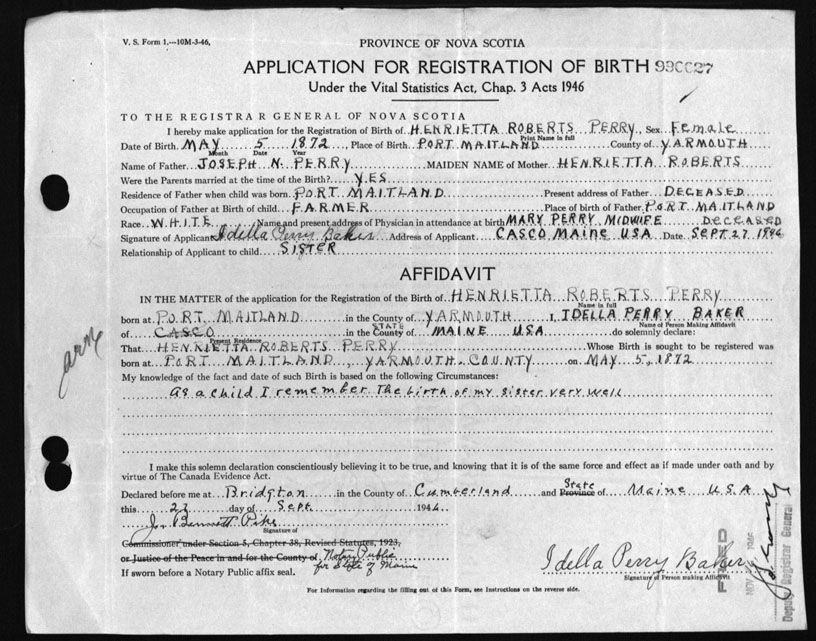 V. S. Form 1.—10M-3-46,
PROVINCE OF NOVA SCOTIA
APPLICATION FOR REGISTRATION OF BIRTH 990027
Under the Vital Statistics Act, Chap. 3 Acts 1946
TO THE REGISTRAR GENERAL OF NOVA SCOTIA
I hereby make application for the Registration of Birth of HENRIETTA ROBERTS PERRY, Sex Female
Print Name in full
Date of Birth MAY 5 1872, Place of Birth PORT MAITLAND County of YARMOUTH
Month Date Year
Name of Father JOSEPH N. PERRY MAIDEN NAME of Mother HENRIETTA ROBERTS
Were the Parents married at the time of the Birth? YES
Residence of Father when child was born PORT MAITLAND Present address of Father DECEASED
Occupation of Father at Birth of child FARMER Place of birth of Father PORT MAITLAND
Race WHITE Name and present address of Physician in attendance at birth MARY PERRY MIDWIFE DECEASED
Signature of Applicant Idella Perry Baker Address of Applicant CASCO MAINE USA Date SEPT. 27 1946
Relationship of Applicant to child SISTER
AFFIDAVIT
IN THE MATTER of the application for the Registration of the Birth of HENRIETTA ROBERTS PERRY
Name in full
born at PORT MAITLAND in the County of YARMOUTH I, IDELLA PERRY BAKER
Name of Person Making Affidavit
of CASCO in the County of STATE MAINE USA do solemnly declare:
Present Residence
That HENRIETTA ROBERTS PERRY Whose Birth is sought to be registered was
born at PORT MAITLAND, YARMOUTH COUNTY on MAY 5, 1872
My knowledge of the fact and date of such Birth is based on the following Circumstances:
As a child I remember The birth of my sister very well
I make this solemn declaration conscientiously believing it to be true, and knowing that it is of the same force and effect as if made under oath and by
virtue of The Canada Evidence Act.
Declared before me at Bridgton in the County of Cumberland and Province State of Maine U.S.A
this 27 day of Sept. 1946
J. Bennett Pike
Signature of
Commissioner under Section 5, Chapter 38, Revised Statutes, 1923,
or Justice of the Peace in and for the County of Notary Public
for State of Maine
If sworn before a Notary Public affix seal.
Idella Perry Baker
Signature of Person making Affidavit
For Information regarding the filling out of this Form, see Instructions on the reverse side.
FILED
Deputy Registrar General